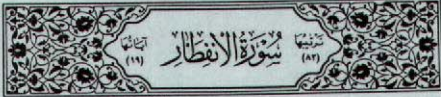 ترتيبها (٨٢) سُورَةُ الِانْفِطَارِ آياتها (١٩)